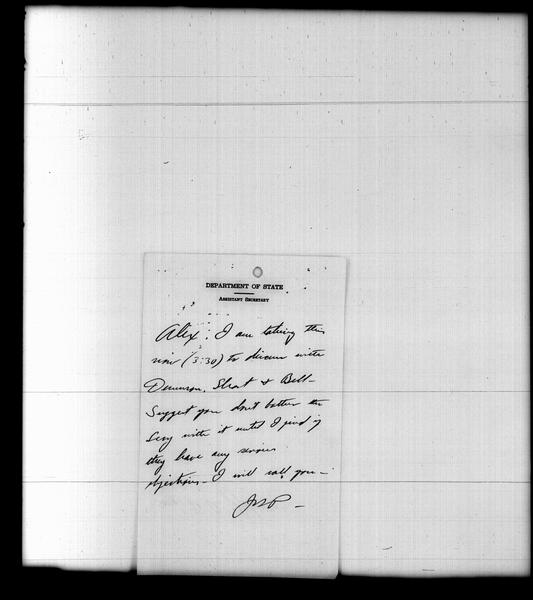 DEPARTMENT OF STATE
ASSISTANT SECRETARY
Alex: I am taking this
now (3:30) to discuss with
Dennison, Short & Bell—
Suggest you don't bother the
Secy with it until I find if
they have any serious
objections— I will call you—